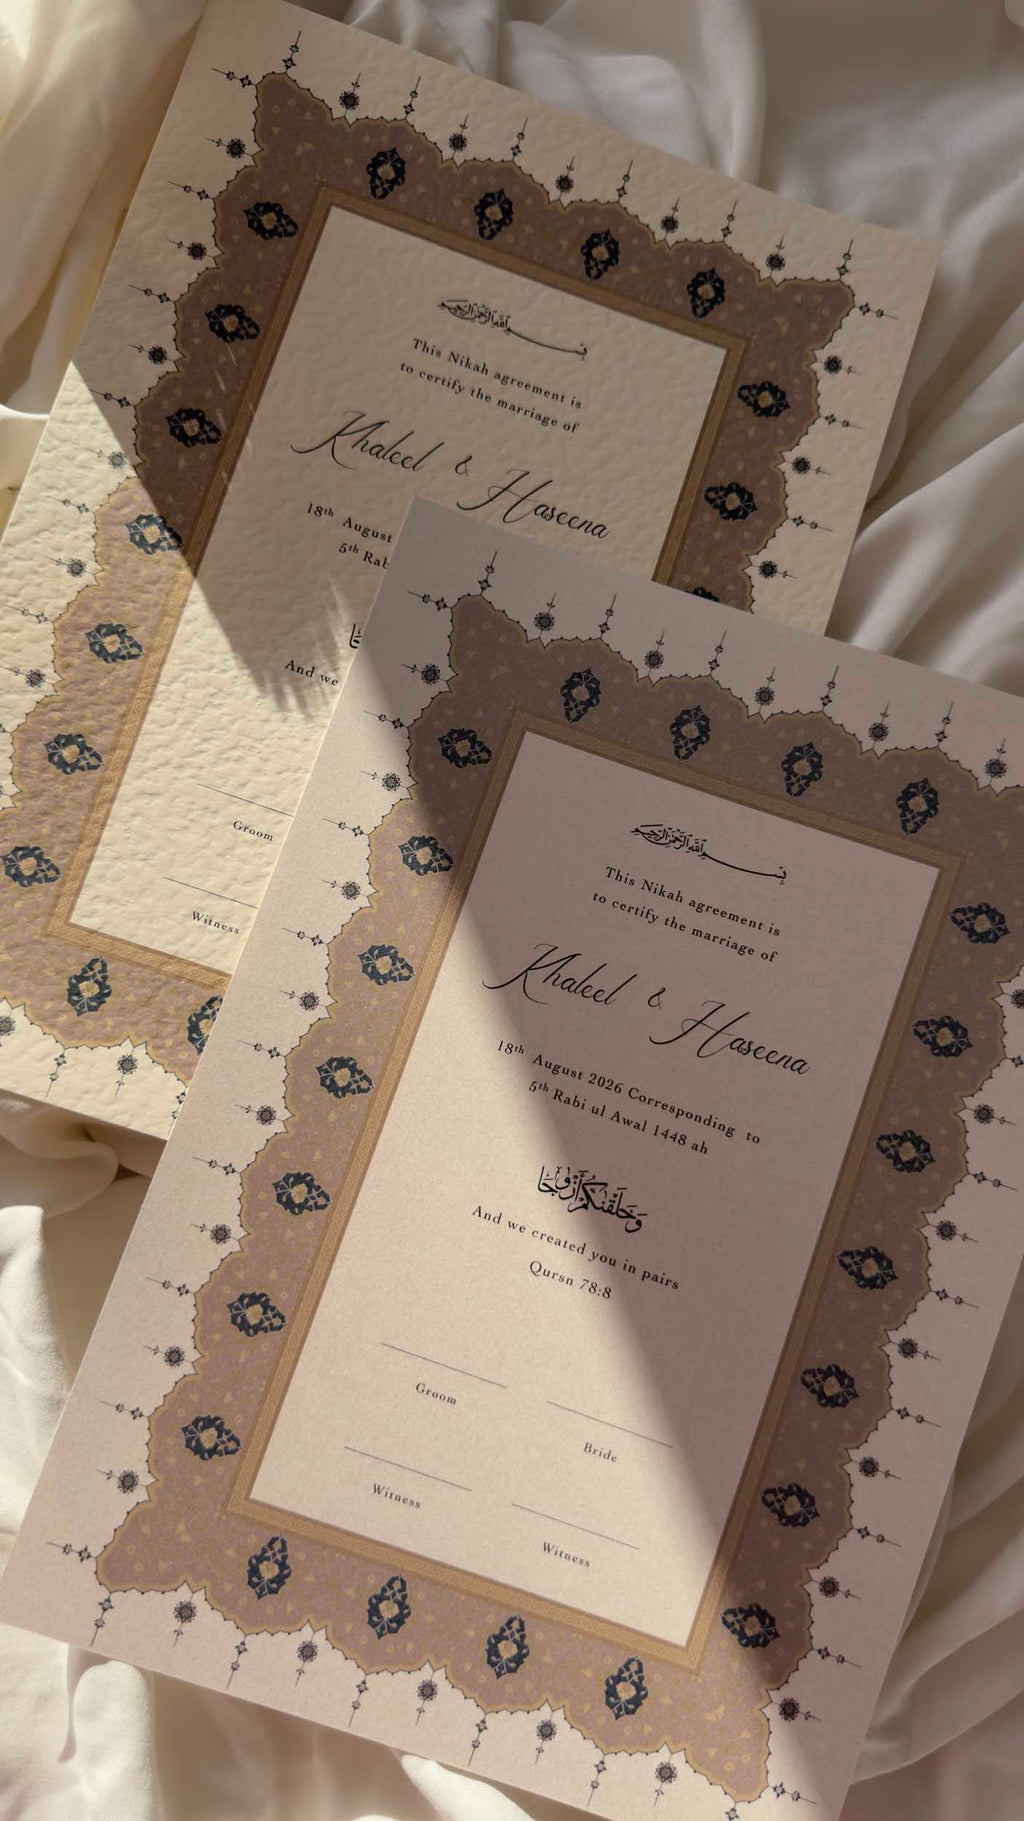 بسم الله الرحمن الرحيم
This Nikah agreement is
to certify the marriage of
Khaleel & Haseena
18th August
5th Rab
And we
Groom
Witness
بسم الله الرحمن الرحيم
This Nikah agreement is
to certify the marriage of
Khaleel & Haseena
18th August 2026 Corresponding to
5th Rabi ul Awal 1448 ah
وَخَلَقْنَٰكُمْ أَزْوَٰجًا
And we created you in pairs
Qursn 78:8
Groom
Bride
Witness
Witness